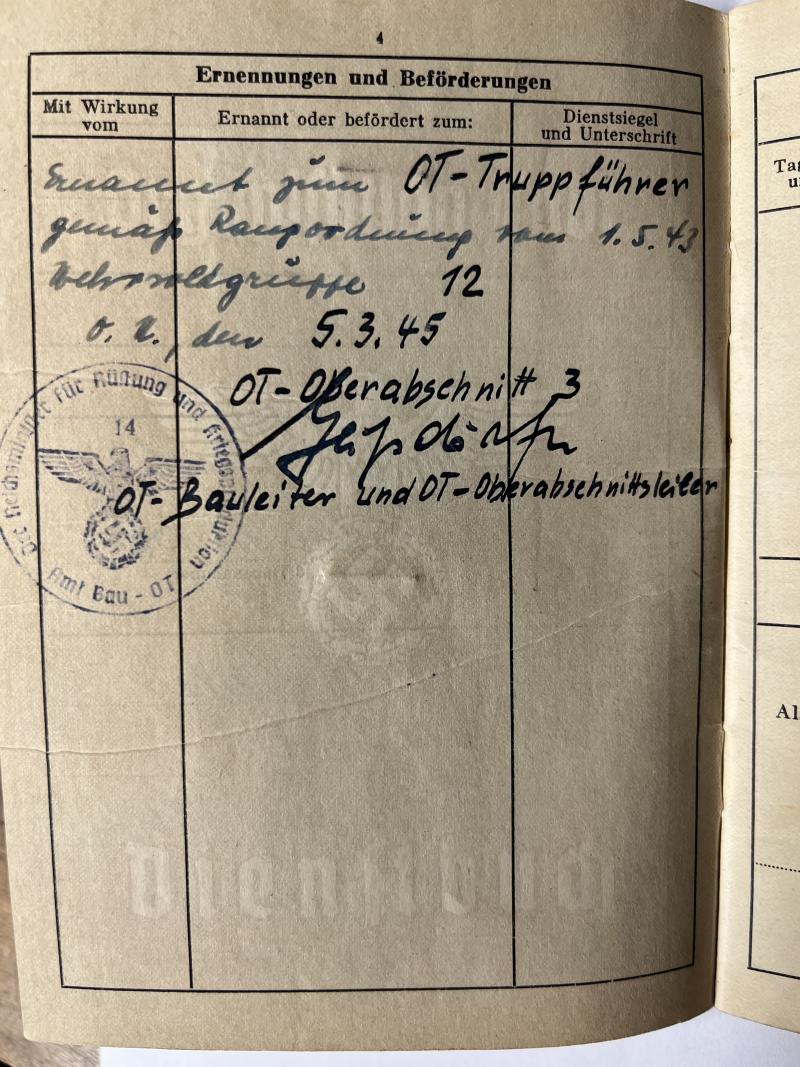 4
Ernennungen und Beförderungen
Mit Wirkung vom
Ernannt oder befördert zum:
Dienstsiegel und Unterschrift
Ernannt zum OT-Truppführer
gemäß Rangordnung vom 1.5.43
Wehrsoldgruppe 12
O. U., den 5.3.45
OT-Oberabschnitt 3
OT-Bauleiter und OT-Oberabschnittsleiter
Der Reichsminister für Rüstung und Kriegsproduktion
14
Amt Bau - OT
Dienstbuch
Ta
u
Al